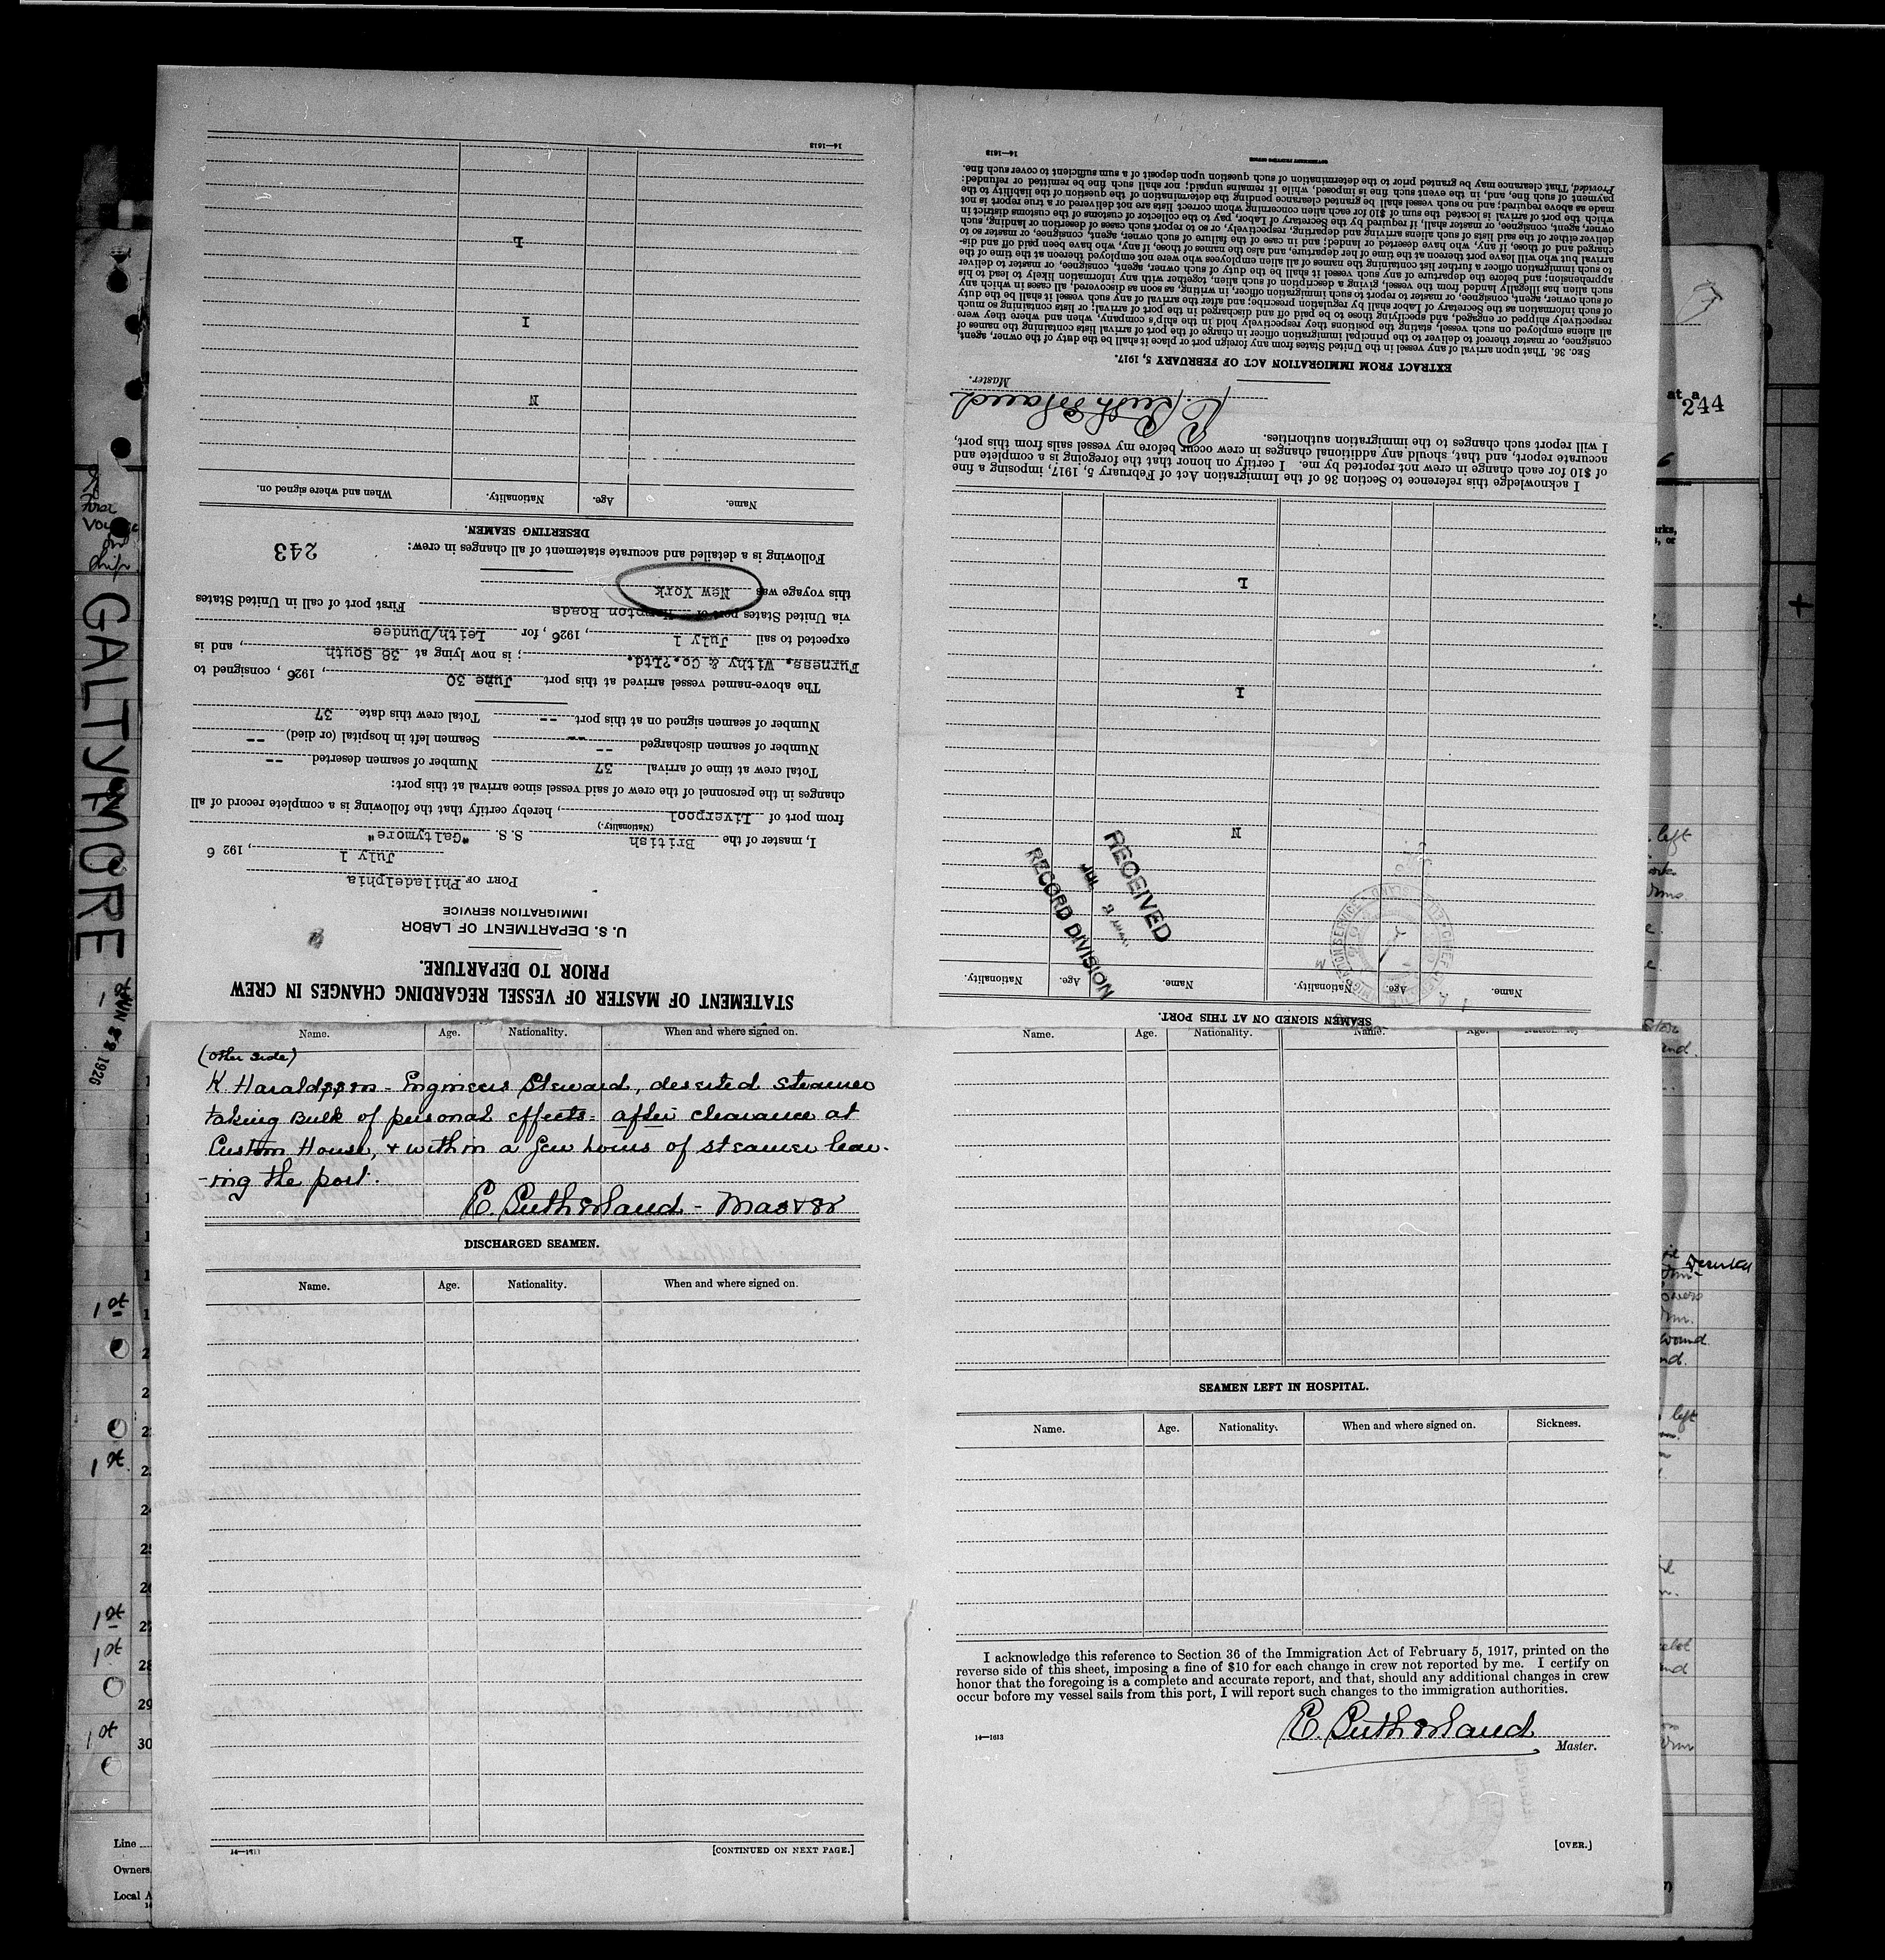 STATEMENT OF MASTER OF VESSEL REGARDING CHANGES IN CREW
PRIOR TO DEPARTURE.
U. S. DEPARTMENT OF LABOR
IMMIGRATION SERVICE
PORT OF Philadelphia
July 1, 1926
I, master of the British S. S. "Galtymore"
(Nationality.)
from port of Liverpool, hereby certify that the following is a complete record of all
changes in the personnel of the crew of said vessel since arrival at this port:
Total crew at time of arrival 37 Number of seamen deserted --
Number of seamen discharged -- Seamen left in hospital (or died) --
Number of seamen signed on at this port -- Total crew this date 37
The above-named vessel arrived at this port June 30, 1926, consigned to
Furness, Withy & Co.?Ltd.; is now lying at 38 South, and is
expected to sail July 1, 1926, for Leith/Dundee
via United States port of Hampton Roads First port of call in United States
this voyage was New York
Following is a detailed and accurate statement of all changes in crew: 243
DESERTING SEAMEN.
Name. Age. Nationality. When and where signed on.
N
I
L
14—1613
SEAMEN SIGNED ON AT THIS PORT.
Name. Age. Nationality. Name. Age. Nationality.
RECEIVED
JUL 2
RECORD DIVISION
N
I
L
I acknowledge this reference to Section 36 of the Immigration Act of February 5, 1917, imposing a fine
of $10 for each change in crew not reported by me. I certify on honor that the foregoing is a complete and
accurate report, and that, should any additional changes in crew occur before my vessel sails from this port,
I will report such changes to the immigration authorities.
E. Rutherland
Master.
EXTRACT FROM IMMIGRATION ACT OF FEBRUARY 5, 1917.
SEC. 36. That upon arrival of any vessel in the United States from any foreign port or place it shall be the duty of the owner, agent,
consignee, or master thereof to deliver to the principal immigration officer in charge of the port of arrival lists containing the names of
all aliens employed on such vessel, stating the positions they respectively hold in the ship's company, when and where they were
respectively shipped or engaged, and specifying those to be paid off and discharged in the port of arrival; or lists containing so much
of such information as the Secretary of Labor shall by regulation prescribe; and after the arrival of any such vessel it shall be the duty
of such owner, agent, consignee, or master to report to such immigration officer, in writing, as soon as discovered, all cases in which any
such alien has illegally landed from the vessel, giving a description of such alien, together with any information likely to lead to his
apprehension; and before the departure of any such vessel it shall be the duty of such owner, agent, consignee, or master to deliver
to such immigration officer a further list containing the names of all alien employees who were not employed thereon at the time of the
arrival but who will leave port thereon at the time of her departure, and also the names of those, if any, who have been paid off and dis-
charged and of those, if any, who have deserted or landed; and in case of the failure of such owner, agent, consignee, or master so to
deliver either of the said lists of such aliens arriving and departing, respectively, or so to report such cases of desertion or landing, such
owner, agent, consignee, or master shall, if required by the Secretary of Labor, pay to the collector of customs of the customs district in
which the port of arrival is located the sum of $10 for each alien concerning whom correct lists are not delivered or a true report is not
made as above required; and no such vessel shall be granted clearance pending the determination of the question of the liability to the
payment of such fine, and, in the event such fine is imposed, while it remains unpaid; nor shall such fine be remitted or refunded:
Provided, That clearance may be granted prior to the determination of such question upon deposit of a sum sufficient to cover such fine.
GOVERNMENT PRINTING OFFICE
14—1613
GALTYMORE
JUN 22 1926
First
Voyage
on
ship.
at a
244
Name. Age. Nationality. When and where signed on.
(other side)
K Haraldssen - Engineers Steward, deserted steamer
taking Bulk of personal effects = after clearance at
Custom House, & within a few hours of steamer leav-
-ing the port.
E. Rutherland - Master
DISCHARGED SEAMEN.
Name. Age. Nationality. When and where signed on.
14—1613
[CONTINUED ON NEXT PAGE.]
Name. Age. Nationality. Name. Age. Nationality.
SEAMEN LEFT IN HOSPITAL.
Name. Age. Nationality. When and where signed on. Sickness.
I acknowledge this reference to Section 36 of the Immigration Act of February 5, 1917, printed on the
reverse side of this sheet, imposing a fine of $10 for each change in crew not reported by me. I certify on
honor that the foregoing is a complete and accurate report, and that, should any additional changes in crew
occur before my vessel sails from this port, I will report such changes to the immigration authorities.
E. Rutherland
14—1613
Master.
[OVER.]
1st
1st
1st
1st
1st
28
29
30
left
Deserted
left
Line
Owners
Local A